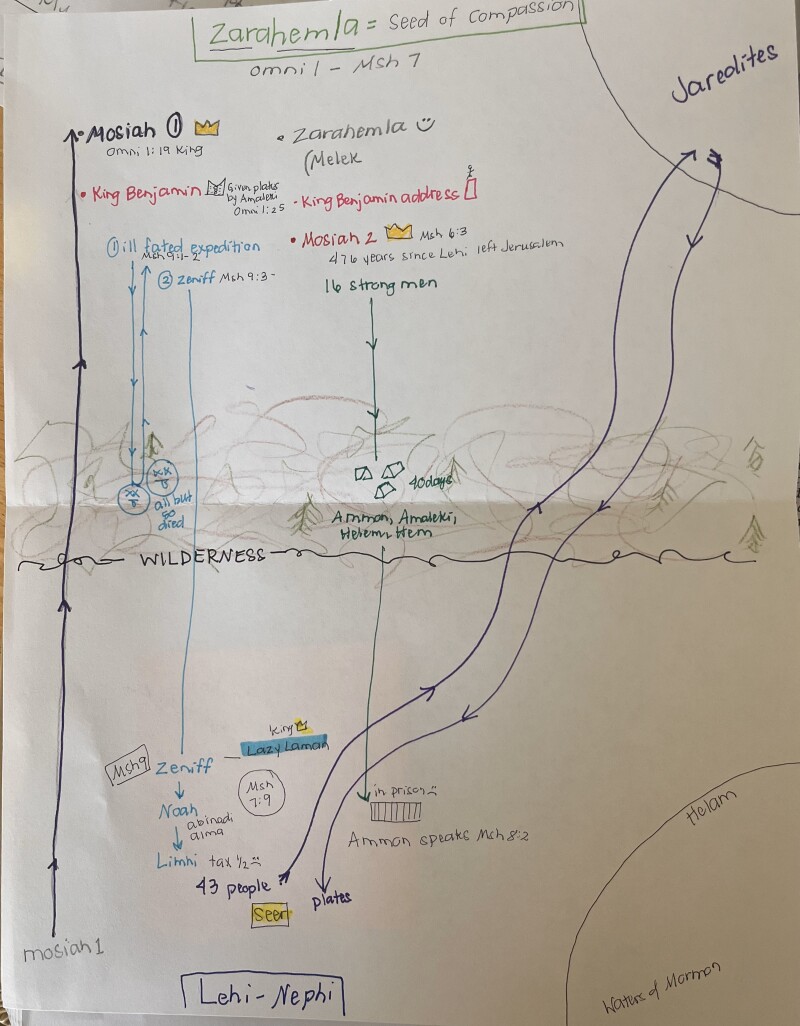 Zarahemla = Seed of Compassion
Omni 1 - Msh 7
Jaredites
• Mosiah ①
Omni 1:19 King
• Zarahemla
(Melek
• King Benjamin
Given plates
by Amaleki
Omni 1:25
• King Benjamin address
• Mosiah 2 Msh 6:3
476 years since Lehi left Jerusalem
① ill fated expedition
Msh 9:1-2
② Zeniff Msh 9:3-
16 strong men
XX
XX
all but
50
died
40 days
Ammon, Amaleki,
Helem, Hem
WILDERNESS
King
Lazy Laman
Msh 9
Zeniff
Msh
7:9
Noah
abinadi
alma
Limhi tax 1/2
in prison
Ammon speaks Msh 8:2
43 people
Seer
plates
Helam
Waters of Mormon
mosiah 1
Lehi-Nephi